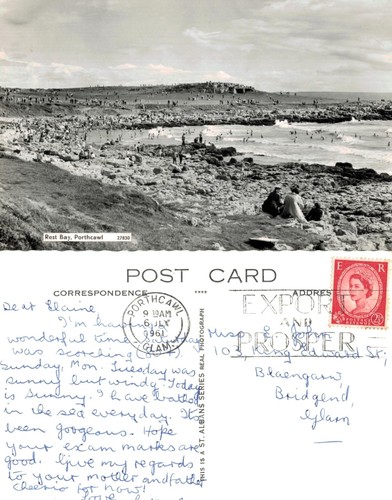 Rest Bay, Porthcawl 27836
POST CARD
CORRESPONDENCE
ADDRESS
PORTHCAWL
9 15AM
6 JLY
1961
GLAM.
EXPORT
AND
PROSPER
E R
THIS IS A ST. ALBANS SERIES REAL PHOTOGRAPH
Dear Elaine
I'm having
wonderful time
was scorching
Sunday. Mon. Tuesday was
sunny but windy. Today
is sunny. I have bathed
in the sea everyday. It
been gorgeous. Hope
your exam marks are
good. Give my regards
to your mother and father
cheerio for now!
Miss E.
103 King Edward St,
Blaengarw,
Bridgend,
Glam